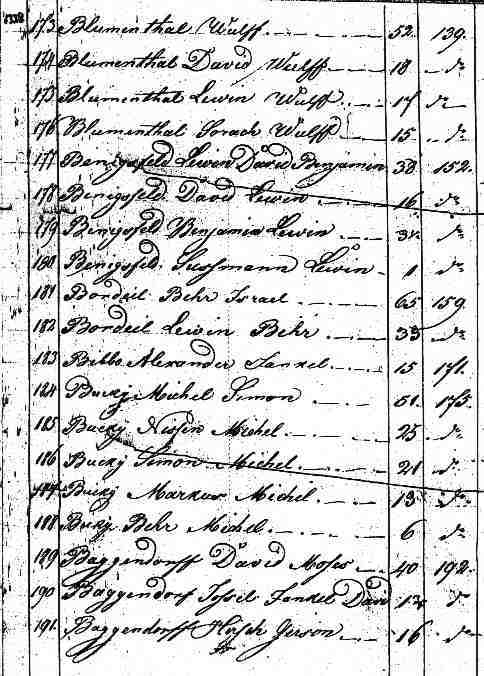 173 Blumenthal Wulff 52. 139.
174 Blumenthal David Wulff 18 do
175 Blumenthal Lewin Wulff 17 do
176 Blumenthal Wulff 15 do
177 Benigsfeld Lewin David Benjamin 38 152.
178 Benigsfeld David Lewin 16 do
179 Benigsfeld Benjamin Lewin do
180 Benigsfeld Sussmann Lewin 1 do
181 Bordeil Behr Israel 65 159
182 Bordeil Lewin Behr 33 do
183 Alexander Jankel 15 171.
184 Bucky Michel Simon 61. 175.
185 Bucky Nissen Michel 25 do
186 Bucky Simon Michel 21 do
187 Bucky Markus Michel 13 do
188 Bucky Behr Michel 6 do
189 Baggendorff David Moses 40 192.
190 Baggendorf Jossel Jankel David do
191. Baggendorff Hirsch Jerson 16 do